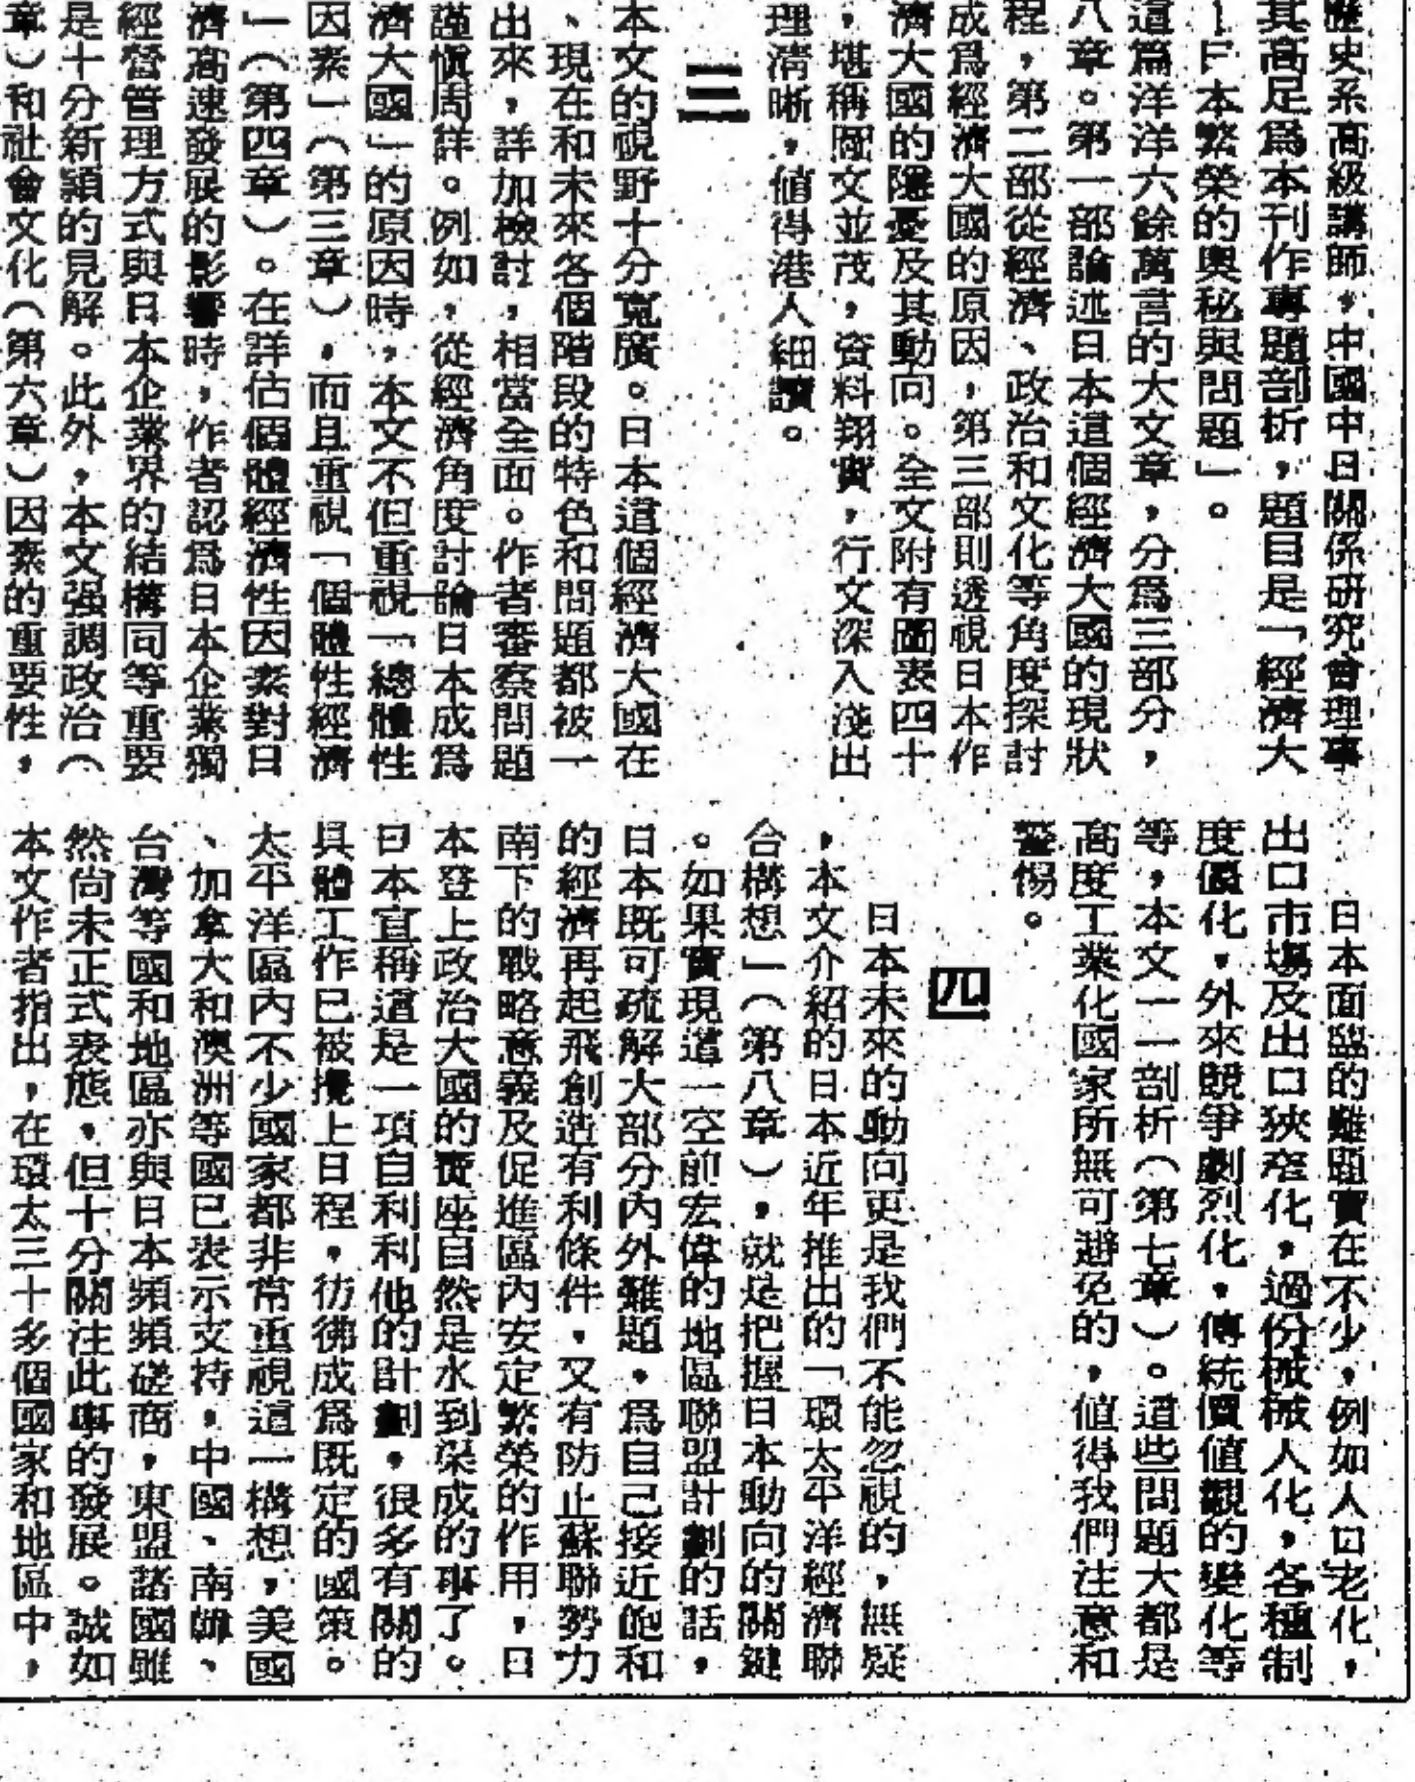 歷史系高級講師，中國中日關係研究會理事
其高足爲本刊作專題剖析，題目是「經濟大
日本繁榮的奧秘與問題」。
這篇洋洋六餘萬言的大文章，分爲三部分，
八章。第一部論述日本這個經濟大國的現狀
程，第二部從經濟、政治和文化等角度探討
成爲經濟大國的原因，第三部則透視日本作
濟大國的隱憂及其動向。全文附有圖表四十
，堪稱圖文並茂，資料翔實，行文深入淺出
理清晰，值得港人細讀。
三
本文的視野十分寬廣。日本這個經濟大國在
、現在和未來各個階段的特色和問題都被一
出來，詳加檢討，相當全面。作者審察問題
謹慎周詳。例如，從經濟角度討論日本成爲
濟大國」的原因時，本文不但重視「總體性
因素」（第三章），而且重視「個體性經濟
」（第四章）。在詳估個體經濟性因素對日
濟高速發展的影響時，作者認爲日本企業獨
經營管理方式與日本企業界的結構同等重要
是十分新穎的見解。此外，本文强調政治（
章）和社會文化（第六章）因素的重要性，
日本面臨的難題實在不少，例如人口老化，
出口市場及出口狹窄化，過份機械人化，各種制
度僵化，外來競爭劇烈化，傳統價值觀的變化等
等，本文一一剖析（第七章）。這些問題大都是
高度工業化國家所無可避免的，值得我們注意和
警惕。
四
日本未來的動向更是我們不能忽視的，無疑
，本文介紹的日本近年推出的「環太平洋經濟聯
合構想」（第八章），就是把握日本動向的關鍵
。如果實現這一空前宏偉的地區聯盟計劃的話，
日本既可疏解大部分內外難題，爲自己接近飽和
的經濟再起飛創造有利條件，又有防止蘇聯勢力
南下的戰略意義及促進區內安定繁榮的作用，日
本登上政治大國的寶座自然是水到渠成的事了。
日本宣稱這是一項自利利他的計劃，很多有關的
具體工作已被攪上日程，彷彿成爲既定的國策。
太平洋區內不少國家都非常重視這一構想，美國
、加拿大和澳洲等國已表示支持，中國、南韓、
台灣等國和地區亦與日本頻頻磋商，東盟諸國雖
然尚未正式表態，但十分關注此事的發展。誠如
本文作者指出，在環太三十多個國家和地區中，